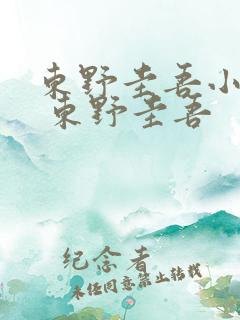 東野圭吾小
東野圭吾
纪念者
未经同意禁止转载